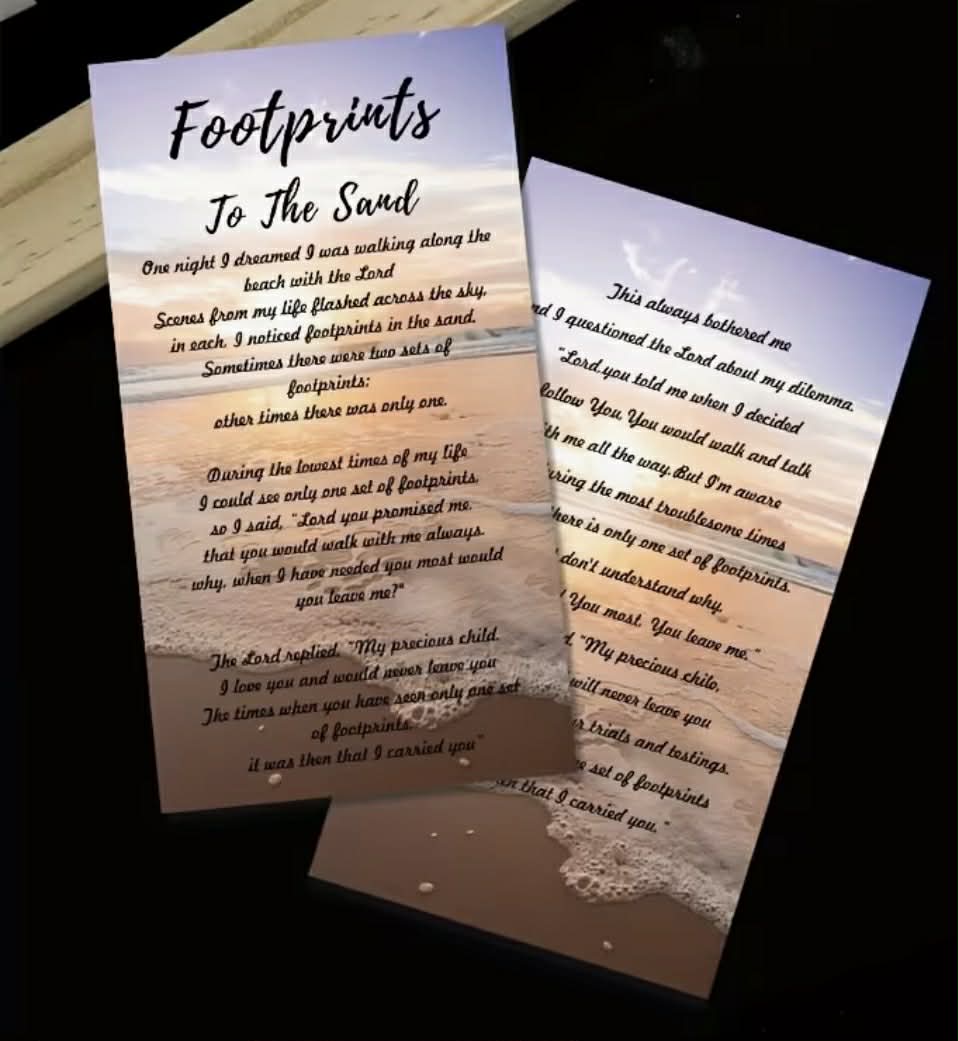 Footprints
To The Sand
One night I dreamed I was walking along the
beach with the Lord
Scenes from my life flashed across the sky,
in each, I noticed footprints in the sand.
Sometimes there were two sets of
footprints;
other times there was only one.
During the lowest times of my life
I could see only one set of footprints,
so I said, "Lord you promised me,
that you would walk with me always.
why, when I have needed you most would
you leave me?"
The Lord replied, "My precious child.
I love you and would never leave you
The times when you have seen only one set
of footprints,
it was then that I carried you"
This always bothered me
I questioned the Lord about my dilemma.
"Lord, you told me when I decided
follow You, You would walk and talk
me all the way. But I'm aware
the most troublesome times
there is only one set of footprints.
don't understand why,
You most, You leave me."
"My precious chilo,
will never leave you
trials and testings.
set of footprints
that I carried you."